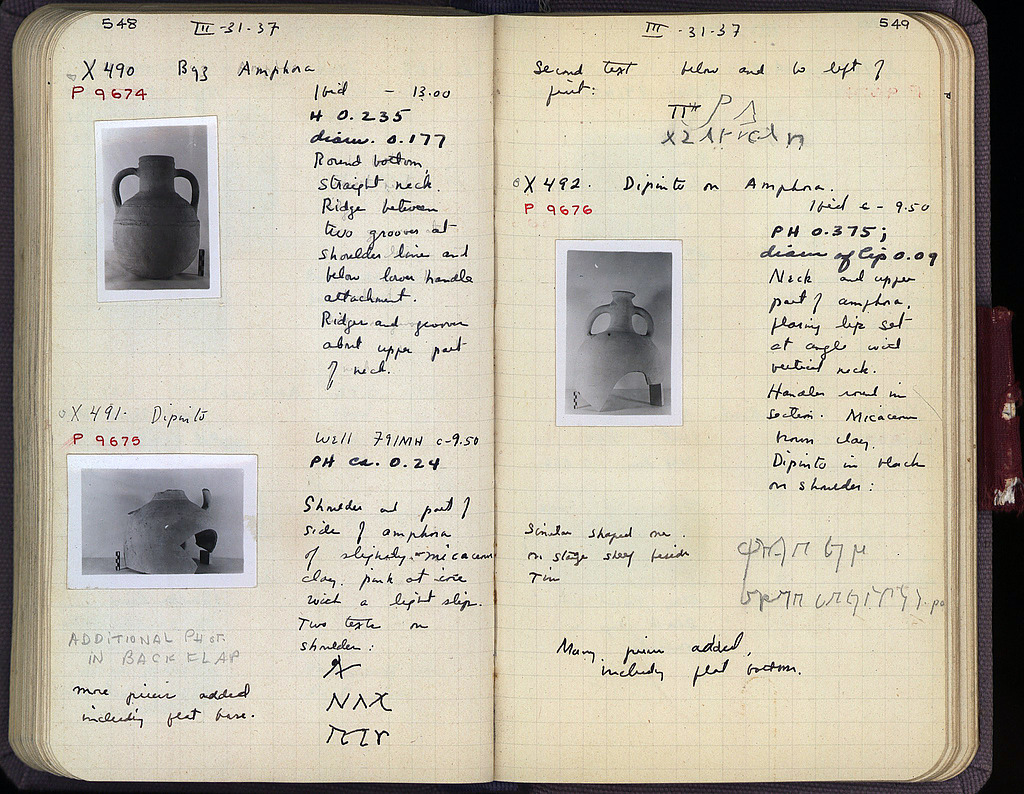 548
III -31-37
X 490 Byz Amphora
P 9674
Ibid - 13.00
H 0.235
diam. 0.177
Round bottom,
straight neck.
Ridge between
two grooves at
shoulder line and
below lower handle
attachment.
Ridges and grooves
about upper part
of neck.
X 491. Dipinto
P 9675
Well 79/MH c-9.50
PH ca. 0.24
Shoulder and part of
side of amphora
of slightly micaceous
clay, pink at core
with a light slip.
Two texts on
shoulder:
ADDITIONAL PHOT.
IN BACK FLAP
more pieces added
including flat base.
549
III -31-37
Second text below and to left of
first:
X 492. Dipinto on Amphora.
P 9676
Ibid c - 9.50
PH 0.375;
diam of lip 0.09
Neck and upper
part of amphora,
flaring lip set
at angle with
vertical neck.
Handles round in
section. Micaceous
brown clay.
Dipinto in black
on shoulder:
Similar shaped one
on stage shelf
Many pieces added,
including flat bottom.